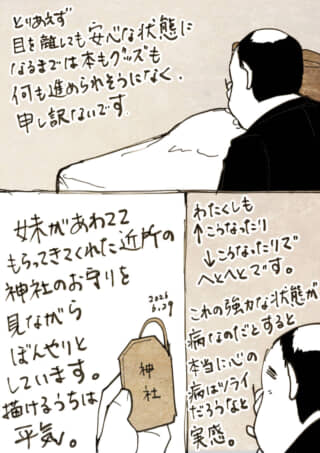 とりあえず
目を離しても安心な状態に
なるまでは本もグッズも
何も進められそうになく、
申し訳ないです。
わたくしも
↑こうなったり
↓こうなったりで
へとへとです。
これの強力な状態が
病なのだとすると
本当に心の
病はツライ
だろうなと
実感。
妹があわてて
もらってきてくれた近所の
神社のお守りを
見ながら
ぼんやりと
しています。
描けるうちは
平気。
6.29
神社